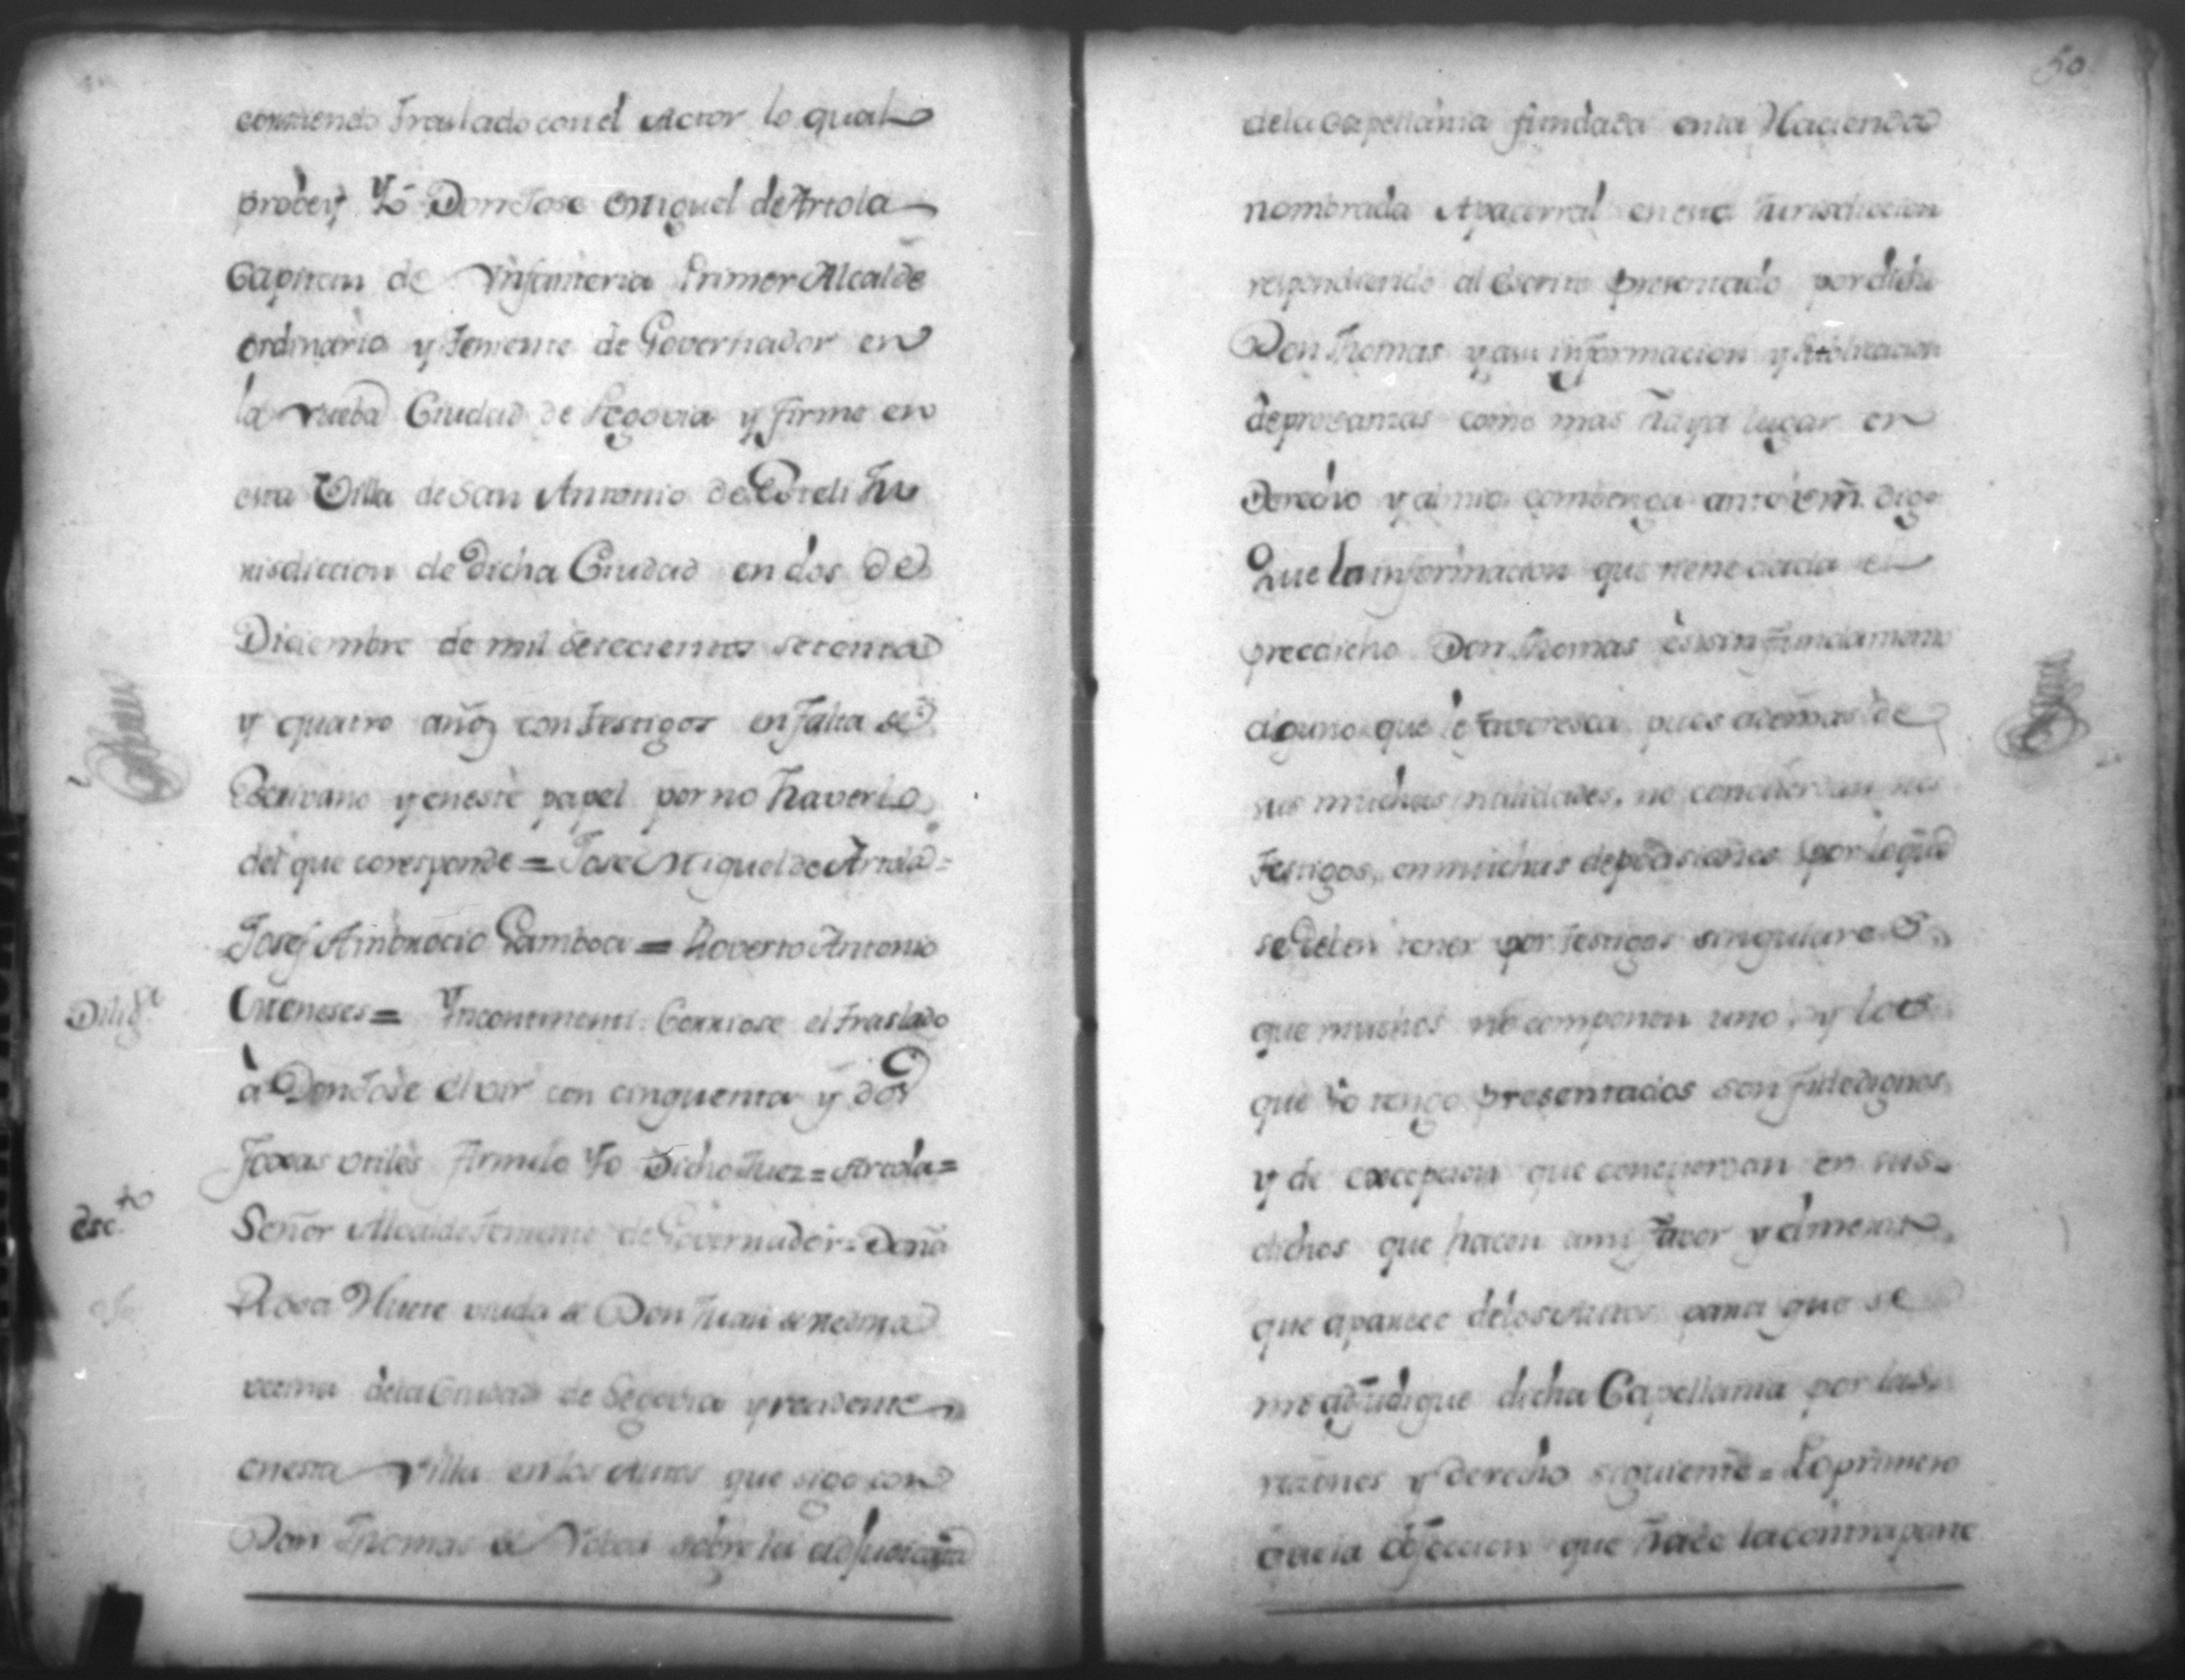 corriendo traslado con el Actor lo qual
probey Yo Don Jose Miguel de Artola
Capitan de Ynfanteria Primer Alcalde
ordinario y Teniente de Governador en
la nueba Ciudad de Segovia y firmo en
esta Villa de San Antonio de Esteli Ju
risdiccion de dicha Ciudad en dos de
Diciembre de mil setecientos setenta
y quatro años con testigos en falta de
Escrivano y en este papel por no haverlo
del que coresponde = Jose Miguel de Artola =
Josef Ambrocio Gamboa = Roverto Antonio
Dilig.ª
Meneses = Yncontinenti Corriose el traslado
à Don Jose con cinquenta y dos
foxas utiles firmelo Yo dicho Juez = Artola =
esc.to
Señor Alcalde Teniente de Governador = Doña
Rosa viuda de Don Juan de
vecina dela Ciudad de Segovia y recidente
en esta Villa en los Autos que sigo con
Don Thomas de sobre la adjudicazn
50
dela Capellania fundada en la Hacienda
nombrada en esta Jurisdiccion
respondiendo al Escrito presentado por dicho
Don Thomas y a su informacion y Publicacion
de provanzas como mas haya lugar en
Derecho y al mio combenga ante Vm. digo
Que la informacion que tiene dada el
predicho Don Thomas es sin fundamento
alguno que le favoresca pues ademas de
sus muchas nulidades, no concuerdan sus
testigos, en muchas deposiciones por lo que
se deben tener por testigos singulares
que muchos no componen uno, y los
que Yo tengo presentados son fidedignos
y de excepcion que concuerdan en sus
dichos que hacen a mi favor y el merito
que aparece delos Autos para que se
me adjudique dicha Capellania por las
razones y derecho siguiente = Lo primero
que la objeccion que hace la contraparte